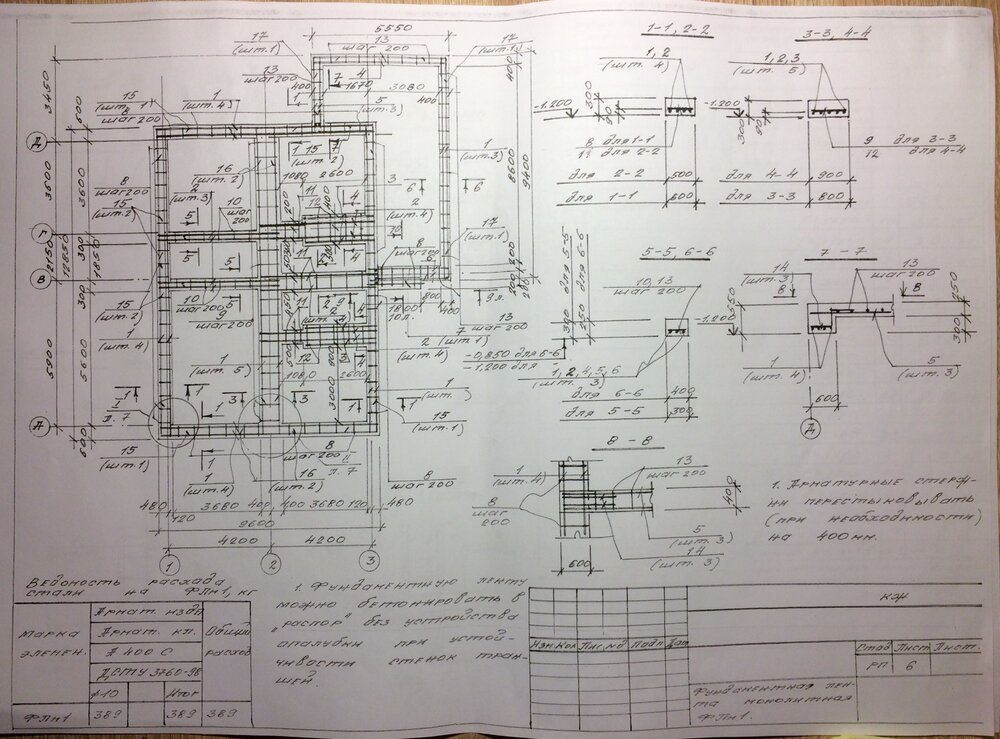 5550
17
(шт.1)
13
шаг 200
17
(шт.1)
13
шаг 200
7
4
1670
3080
400
400
15
(шт. 1)
8
шаг 200
1
(шт. 4)
5
(шт.3)
1
(шт.3)
3450
600
Д
3600
3600
Г
2150
12850
300
1850
В
300
5900
5600
А
600
8
шаг 200
15
(шт.2)
2
(шт.3)
16
(шт. 2)
10
шаг 200
15
(шт. 2)
1080
2600
11
12
3
6
6
2
(шт. 4)
8
шаг 200
17
(шт.1)
8600
9400
5
5
5
5
10
шаг 200
9
шаг 200
15
(шт.2)
1
(шт. 4)
1
(шт. 5)
11
12
1080
2600
3000
1800
800
400
9 л.
13
шаг 200
7
(шт.1)
2
(шт. 4)
1
15
(шт.1)
I
л. 7
15
(шт.1)
1
(шт.4)
16
(шт.2)
8
шаг 200
II
л. 7
8
шаг 200
480
120
3680
400
400
3680
120
480
9600
4200
4200
1
2
3
1-1, 2-2
1, 2
(шт. 4)
-1.200
300
80
8 для 1-1
11 для 2-2
для 2-2 500
для 1-1 600
3-3, 4-4
1, 2, 3
(шт. 5)
-1.200
300
80
9 для 3-3
12 для 4-4
для 4-4 900
для 3-3 800
5-5, 6-6
10, 13
шаг 200
300 для 5-5
250 для 6-6
-0,850 для 6-6
-1,200 для
1, 2, 4, 5, 6
(шт. 3)
для 6-6 400
для 5-5 300
7 - 7
14
(шт.3)
13
шаг 200
8
8
-1.200
550
250
300
1
(шт. 4)
5
(шт. 3)
600
Д
8 - 8
1
(шт.4)
13
шаг 200
8
шаг
200
400
5
(шт. 3)
14
(шт. 3)
600
1. Арматурные стерж-
ни перестыковывать
(при необходимости)
на 400мм.
Ведомость расхода
стали на ФЛм1, кг
Марка
элемен.
Армат. изде
Армат. кл.
А 400 С
ДСТУ 3760-98
ф10
Итог
Общий
расход
ФЛм1
389
389
389
1. Фундаментную ленту
можно бетонировать в
"распор" без устройства
опалубки при устой-
чивости стенок тран-
шей.
КЖ
Изм Кол Лис №д Подп Дат
Стад Лист Лист.
РП 6
Фундаментная лен-
та монолитная
ФЛм1.